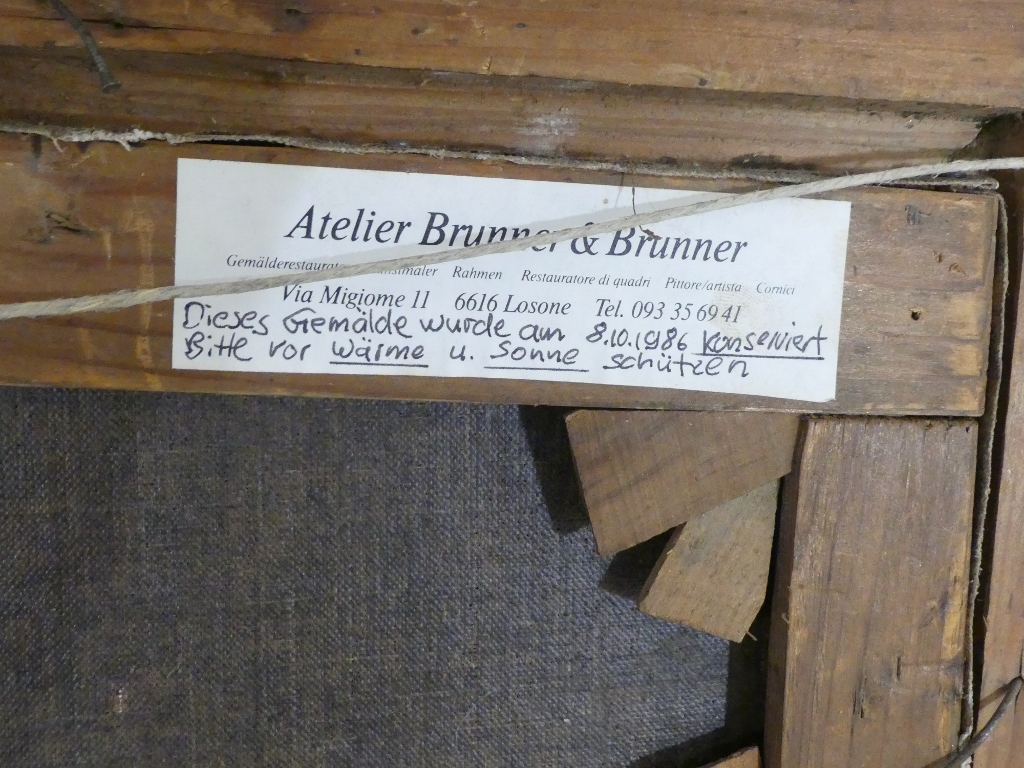 Atelier Brunner & Brunner
Rahmen Restauratore di quadri Pittore/artista Cornici
Via Migiome 11 6616 Losone Tel. 093 35 69 41
Dieses Gemälde wurde am 8.10.1986 konserviert
Bitte vor Wärme u. Sonne schützen